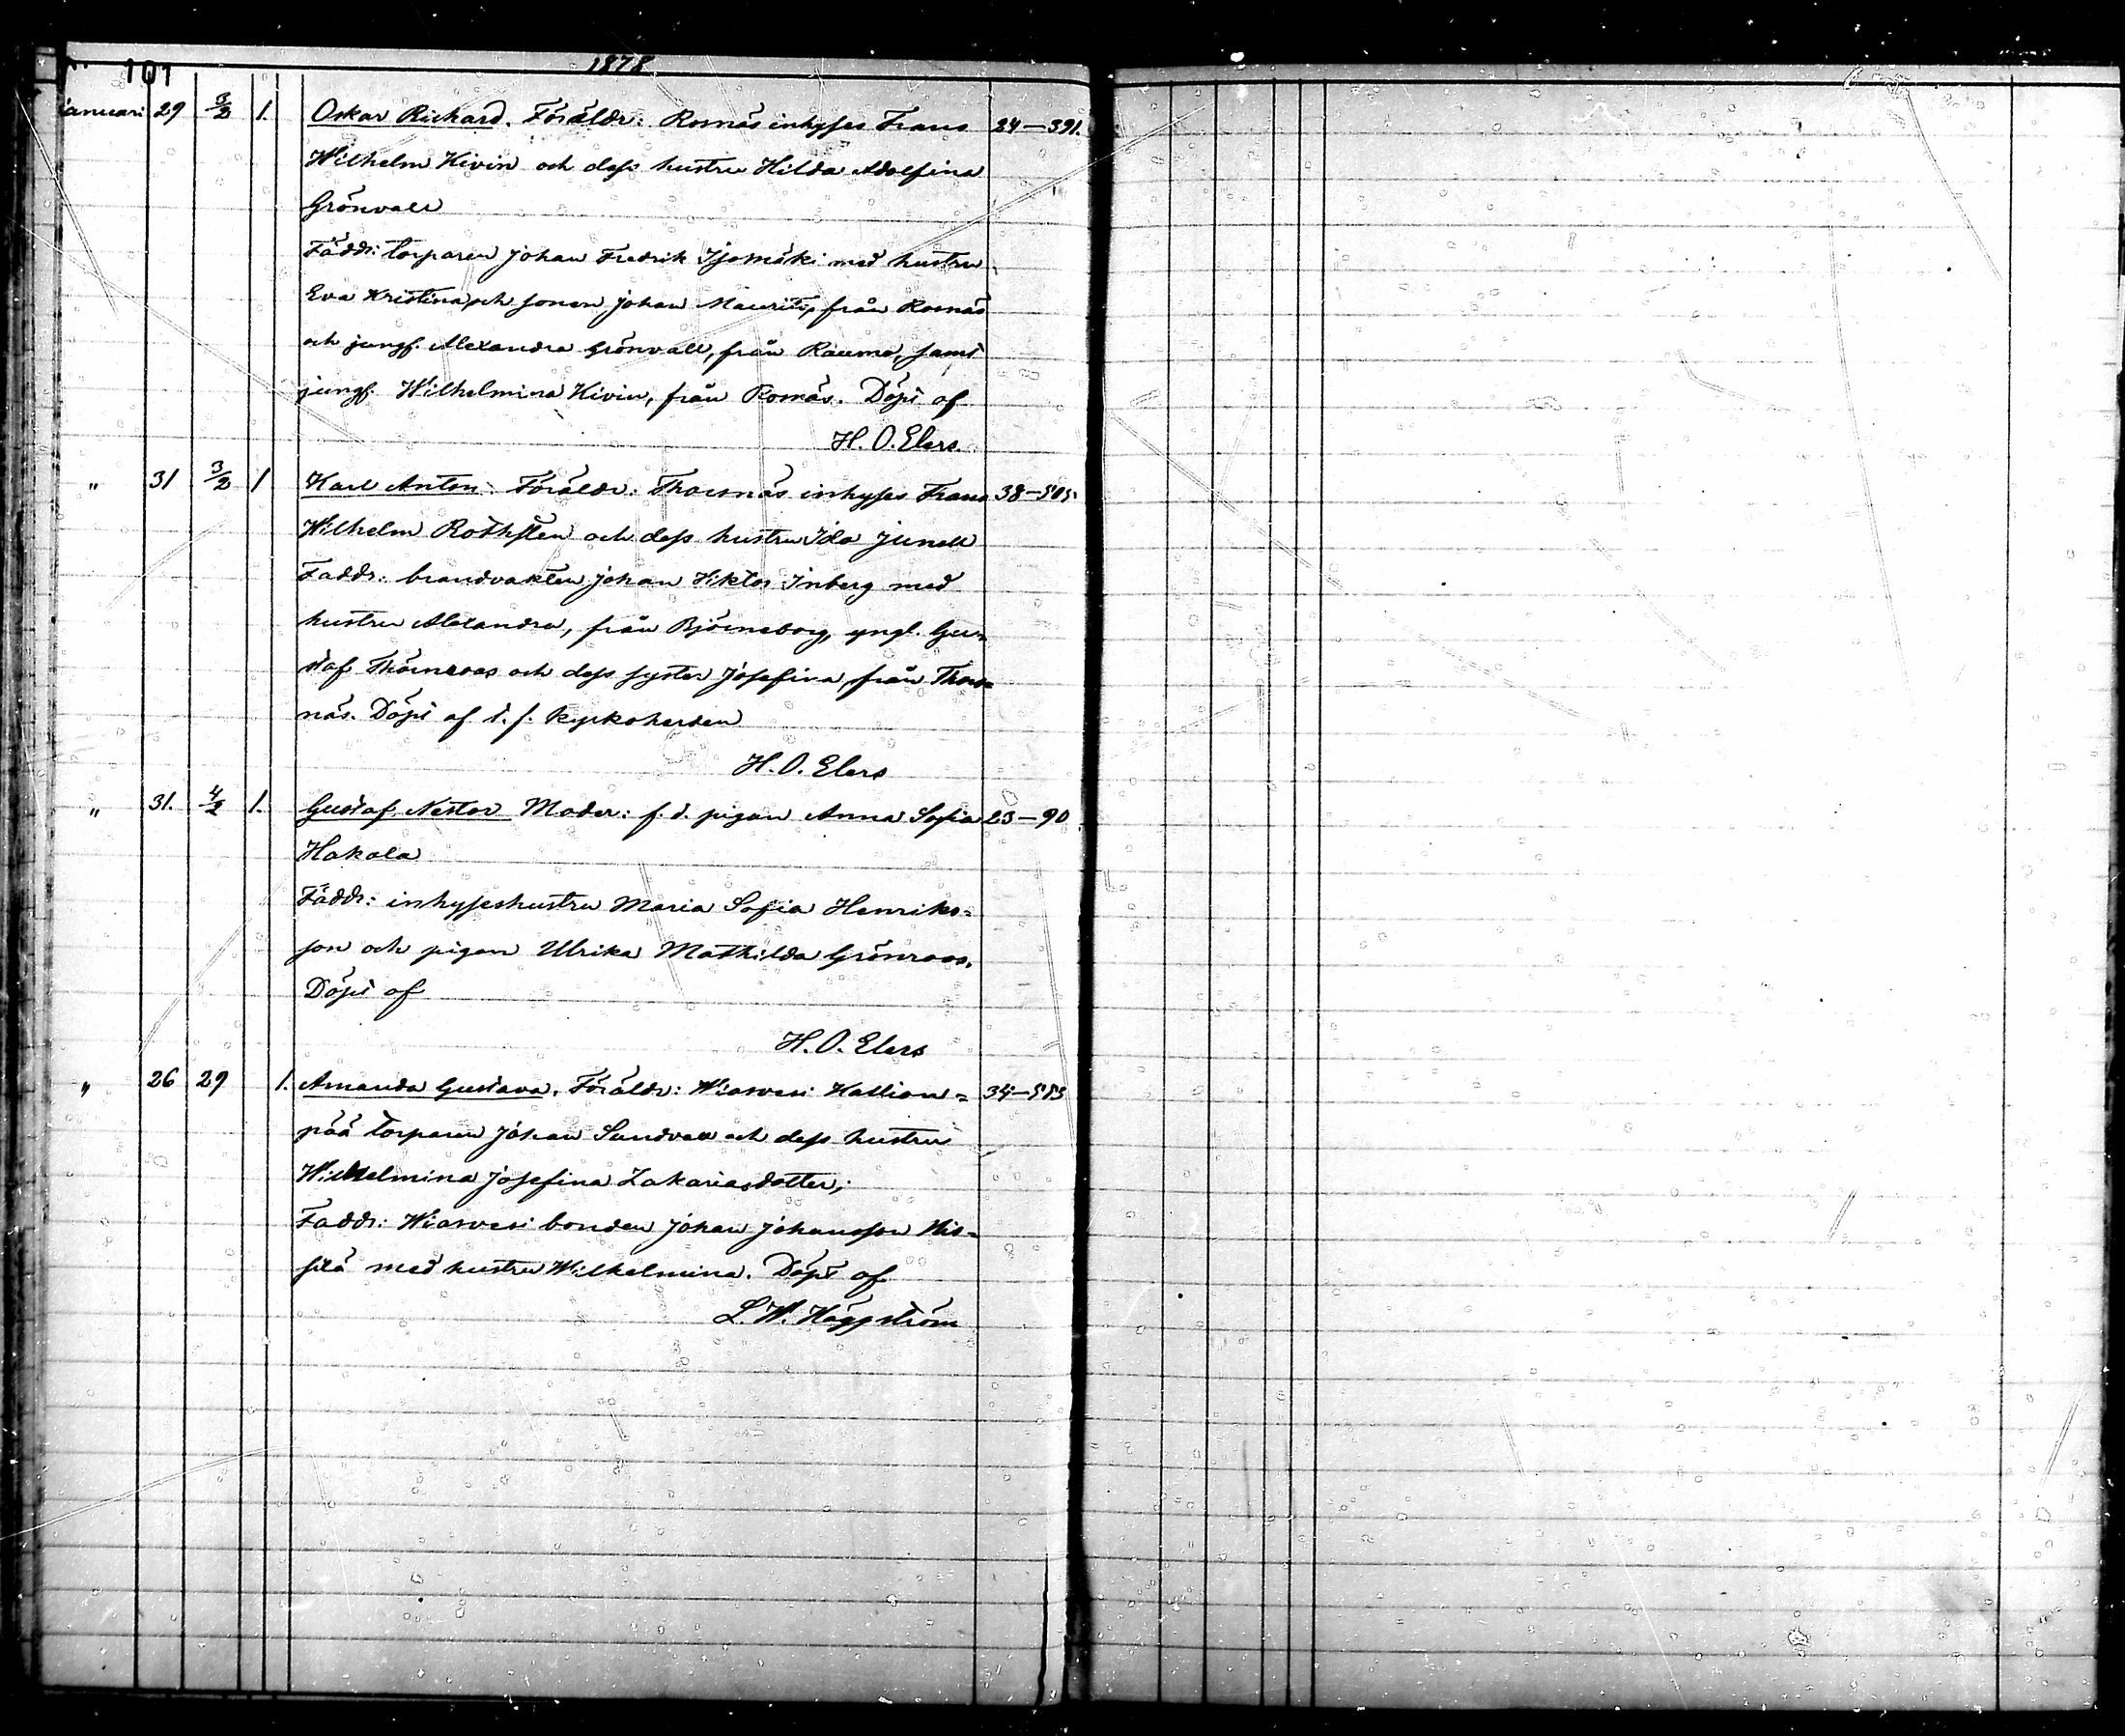 101
1878
Januari 29 3/2 1. Oskar Richard. Föräldr: Rosnäs inhyses Frans 24—391.
Wilhelm Kivin och dess hustru Hilda Adolfina
Grönvall
Faddr: torparen Johan Fredrik Isomäki med hustru
Eva Kristina och sonen Johan Maurits, från Rosnäs
och jungf. Alexandra Grönvall, från Raumo, samt
jungf. Wilhelmina Kivin, från Rosnäs. Döpt af
H. O. Elers.
" 31 3/2 1 Karl Anton. Föräldr: Thorsnäs inhyses Frans 38—505
Wilhelm Rothsten och dess hustru Ida Junell
Faddr: brandvakten Johan Viktor Inberg med
hustru Alexandra, från Björneborg, yngl. Gu=
staf Thörnroos och dess syster Josefina från Thors=
näs. Döpt af t. f. kyrkoherden
H. O. Elers
" 31. 4/2 1. Gustaf Nestor Moder: f. d. pigan Anna Sofia 23—90
Hakala
Faddr: inhyseshustru Maria Sofia Henriks=
son och pigan Ulrika Mathilda Grönroos.
Döpt af
H. O. Elers
" 26 29 1. Amanda Gustava. Föräldr: Wiasvesi Kallion= 34—515
pää torparen Johan Sundvall och dess hustru
Wilhelmina Josefina Zakariasdotter;
Faddr: Wiasvesi bonden Johan Johansson
med hustru Wilhelmina. Döpt af
L. W. Häggström